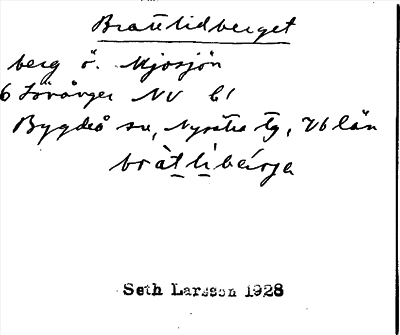 Brattlidberget
berg ö. Mjösjön
6 Lövånger NV b1
Bygdeå sn, Nysätra tg, Vb län
bràtlìbæ̀rje
Seth Larsson 1928